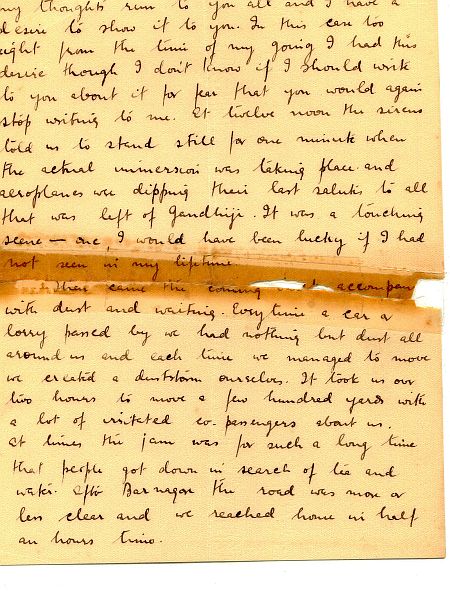 my thoughts run to you all and I have a
desire to show it to you. In this case too
right from the time of my going I had this
desire though I don't know if I should write
to you about it for fear that you would again
stop writing to me. At twelve noon the sirens
told us to stand still for one minute when
the actual immersion was taking place and
aeroplanes were dipping their last salute to all
that was left of Gandhiji. It was a touching
scene — one, I would have been lucky if I had
not seen in my lifetime.
Then came the coming back accompan
with dust and waiting. Everytime a car or
lorry passed by we had nothing but dust all
around us and each time we managed to move
we created a duststorm ourselves. It took us over
two hours to move a few hundred yards with
a lot of irritated co-passengers about us.
At times the jam was for such a long time
that people got down in search of tea and
water. After Barnagar the road was more or
less clear and we reached home in half
an hours time.